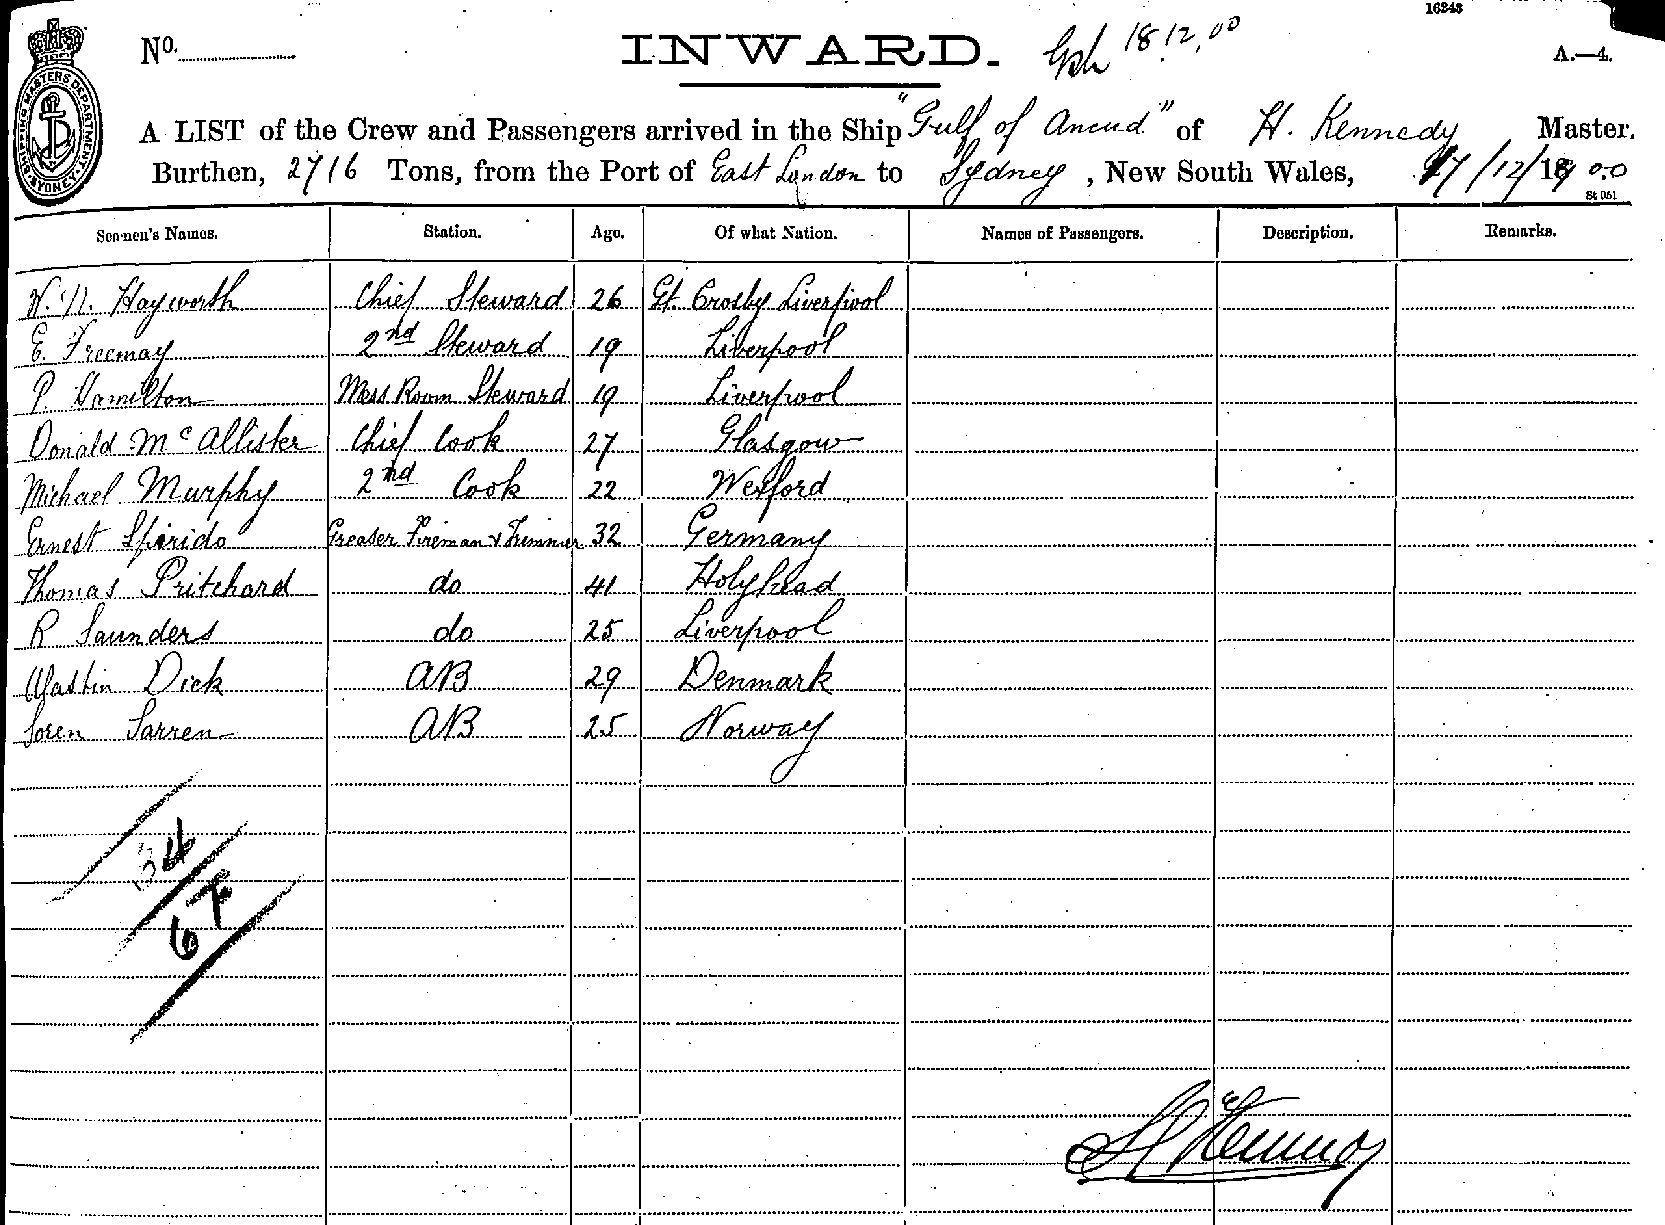 16243
No. INWARD. 18.12.00 A.—4.
SHIPPING MASTERS DEPARTMENT SYDNEY
A LIST of the Crew and Passengers arrived in the Ship "Gulf of Ancud" of H. Kennedy Master.
Burthen, 2716 Tons, from the Port of East London to Sydney, New South Wales, 17/12/1900
St 051
Seamen's Names. Station. Age. Of what Nation. Names of Passengers. Description. Remarks.
W. N. Hayworth Chief Steward 26 Gt. Crosby Liverpool
E. Freemay 2nd Steward 19 Liverpool
P. Hamilton Mess Room Steward 19 Liverpool
Donald McAllister Chief Cook 27 Glasgow
Michael Murphy 2nd Cook 22 Wexford
Ernest Spirido Greaser Fireman & Trimmer 32 Germany
Thomas Pritchard do 41 Holyhead
R Saunders do 25 Liverpool
Dick AB 29 Denmark
Soren Sarren AB 25 Norway
34
6 F
H Kennedy